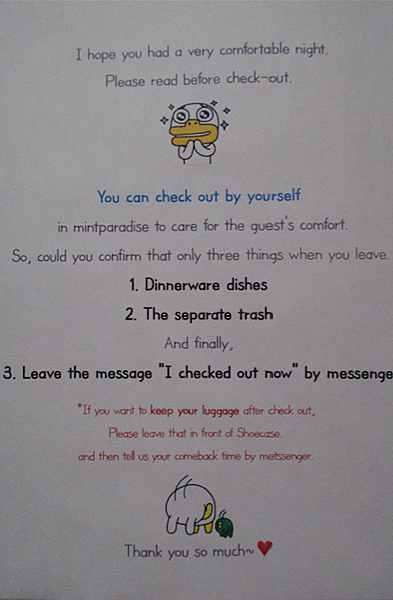 I hope you had a very comfortable night.
Please read before check-out.
You can check out by yourself
in mintparadise to care for the guest's comfort.
So, could you confirm that only three things when you leave.
1. Dinnerware dishes
2. The separate trash
And finally,
3. Leave the message "I checked out now" by messenge
*If you want to keep your luggage after check out,
Please leave that in front of Shoecase.
and then tell us your comeback time by metssenger.
Thank you so much~